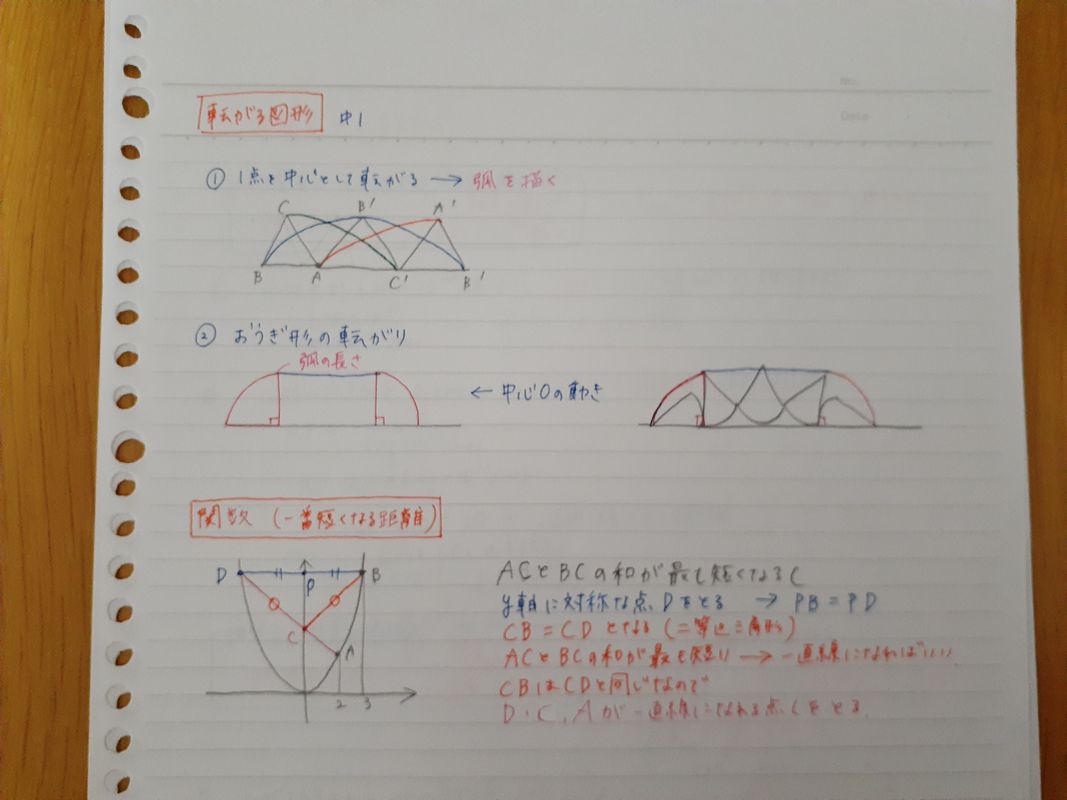 転がる図形 中1
① 1点を中心として転がる → 弧を描く
C B' A'
B A C' B'
② おうぎ形の転がり
弧の長さ
← 中心Oの動き
関数 (一番短くなる距離)
D P B
C
A
2 3
ACとBCの和が最も短くなるC
y軸に対称な点Dをとる → PB=PD
CB=CDとなる(二等辺三角形)
ACとBCの和が最も短い → 一直線になればいい
CBはCDと同じなので
D・C,Aが一直線になれる点Cをとる.